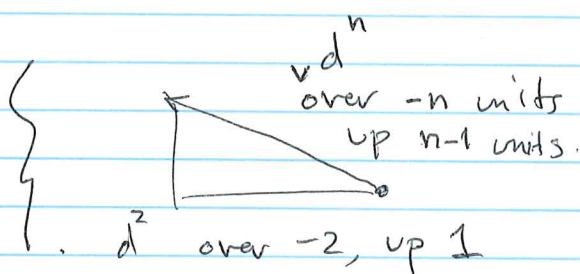 dⁿ
over -n units
up n-1 units.
d² over -2, up 1